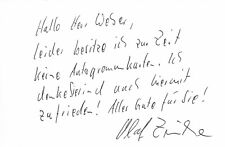 Hallo Herr Weber,
leider besitze ich zur Zeit
keine Autogrammkarten. Ich
hiermit
zufrieden! Alles Gute für Sie!
Olaf